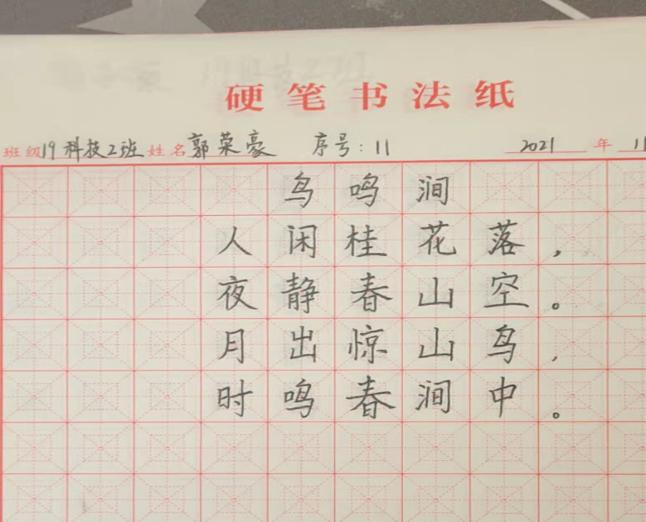 硬笔书法纸
班级19科技2班 姓名郭荣豪 序号:11 2021年11
鸟鸣涧
人闲桂花落,
夜静春山空。
月出惊山鸟,
时鸣春涧中。